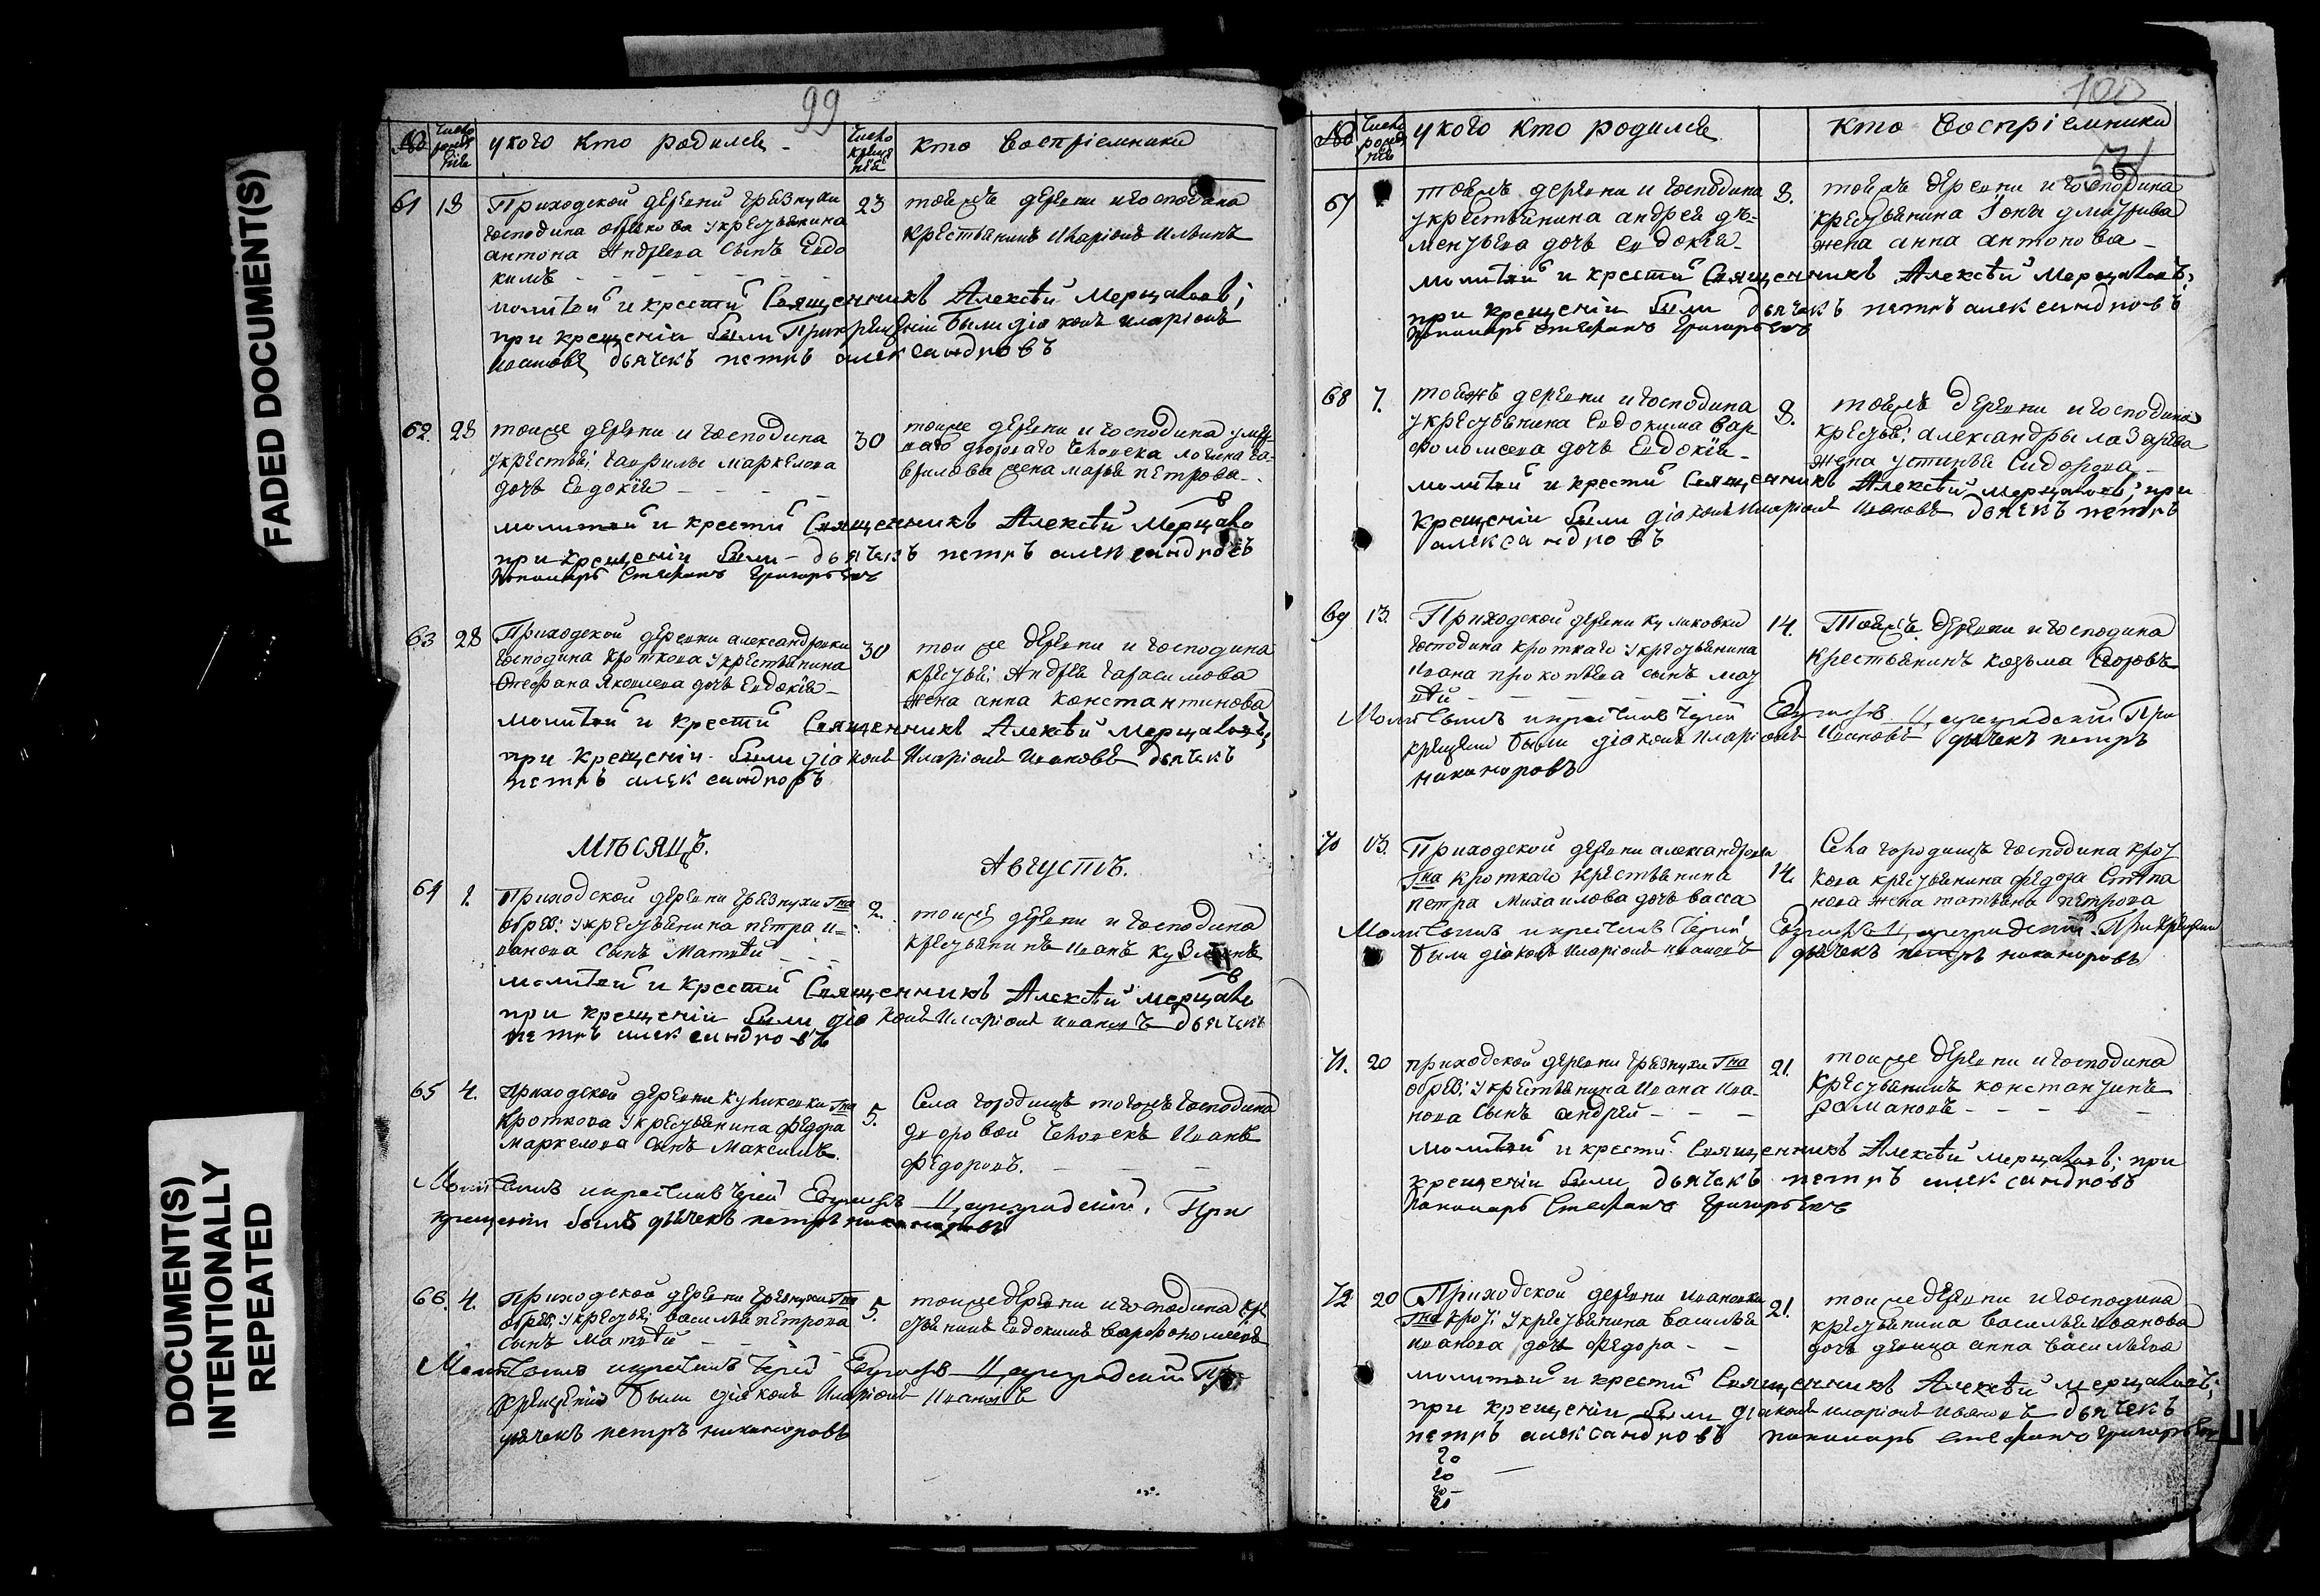 FADED DOCUMENT(S)
DOCUMENT(S)
INTENTIONALLY
REPEATED
99
№
Число рожденія
у кого кто родился
Число крещенія
кто воспріемники
61 18 23
Приходской деревни Грѣзнухи
господина Обрѣскова у крестьянина
антона Андреева сынъ Евдо
кимъ
тоежъ деревни и господина
крестьянинъ Иларіонъ Ильинъ
молитвой и крестий Священникъ Алексѣй Мерцаловъ;
при крещеніи были При крещеніи были діаконъ иларіонъ
ивановъ дьячекъ петръ александровъ
62. 28 30
тоиже деревни и господина
у крестья: гаврилы маркелова
дочь Евдокія
тоиже деревни и господина умер
шаго двороваго человека логина га-
врилова жена марья петрова
молитвой и крестий Священникъ Алексѣй Мерцало
при крещеніи были дьячекъ петръ александровъ
Пономарь Стефанъ Григорьевъ
63 28 30
Приходской деревни александровки
господина Кроткова у крестьянина
Стефана Яковлева дочь Евдокія
тоиже деревни и господина
кресть: Андрея Гарасимова
жена анна Константинова
молитвой и крестий Священникъ Алексѣй Мерцаловъ;
при крещеніи были діаконъ Иларіонъ Ивановъ дьячекъ
петръ александровъ
Мѣсяцъ. Августъ.
64 1. 2.
Приходской деревни Грѣзнухи Гна
обрѣз: у крестьянина петра и-
ванова сынъ Матвѣй
тоиже деревни и господина
крестьянинъ иванъ кузминъ
молитвой и крестий Священникъ Алексѣй Мерцаловъ
при крещеніи были діаконъ Иларіонъ ивановъ дьячекъ
петръ александровъ
65 4. 5.
Приходской деревни куликовки Гна
Кроткова у крестьянина федора
маркелова сынъ Максимъ.
Села городищъ тогожъ господина
дворовой человекъ Иванъ
федоровъ.
Молитвилъ и крестилъ Іерей Цареградскій. При
крещеніи былъ дьячекъ петръ никаноровъ
66. 4. 5.
Приходской деревни Грѣзнухи Гна
обрѣз: у кресть: василья петрова
сынъ матвѣй
тоиже деревни и господина кре
стьянинъ Евдокимъ Варфоломеевъ
Молитвилъ и крестилъ Іерей Цареградскій При
крещеніи были діаконъ Иларіонъ Ивановъ
дьячекъ петръ никаноровъ
100
51
№
Число рожденія
у кого кто родился
кто воспріемники
67 8.
тоежъ деревни и господина
у крестьянина андрея де-
ментьева дочь евдокія
тоежъ деревни и господина
крестьянина Іоны дмитрива
жена анна антонова
молитвой и крестий Священникъ Алексѣй Мерцаловъ;
при крещеніи были дьячекъ петръ александровъ
Пономарь Стефанъ Григорьевъ
68 7. 8.
тоежъ деревни и господина
у крестьянина Евдокима вар
фоломеева дочь Евдокія
тоежъ деревни и господина
кресть: александры лазарева
жена устинья Сидорова
молитвой и крестий Священникъ Алексѣй Мерцаловъ; при
крещеніи были діаконъ Иларіонъ Ивановъ дьячекъ петръ
александровъ
69 13. 14.
Приходской деревни куликовки
господина кроткаго у крестьянина
ивана прокопьева сынъ мат
вѣй
Тоежъ деревни и господина
крестьянинъ козьма Егоровъ
Молитвилъ и крестилъ Іерей Цареградскій При
крещеніи были діаконъ Иларіонъ Ивановъ дьячекъ петръ
никаноровъ
70 13. 14.
Приходской деревни александровки
Гна кроткаго крестьянина
петра Михаилова дочь васса
Села городищъ господина крот
кова крестьянина федора Степа
нова жена татьяна петрова
Молитвилъ и крестилъ Іерей Цареградскій. При крещеніи
были діаконъ Иларіонъ ивановъ дьячекъ петръ никаноровъ
71. 20 21.
приходской деревни Грѣзнухи Гна
обрѣз: у крестьянина Ивана Ива-
нова сынъ андрей
тоиже деревни и господина
крестьянинъ константинъ
романовъ
молитвой и крестий Священникъ Алексѣй Мерцаловъ; при
крещеніи были дьячекъ петръ александровъ
Пономарь Стефанъ Григорьевъ
72 20 21.
Приходской деревни ивановки
Гна крот: у крестьянина василья
иванова дочь федора
тоиже деревни и господина
крестьянина василья иванова
дочь девица анна васильева
молитвой и крестий Священникъ Алексѣй Мерцаловъ;
при крещеніи были діаконъ иларіонъ ивановъ дьячекъ
петръ александровъ пономарь стефанъ Григорьевъ